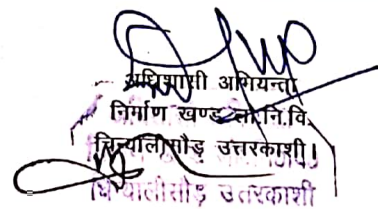 अधिशासी अभियन्ता
निर्माण खण्ड लो.नि.वि.
चिन्यालीसौड़ उत्तरकाशी।
चिन्यालीसौड़ उत्तरकाशी